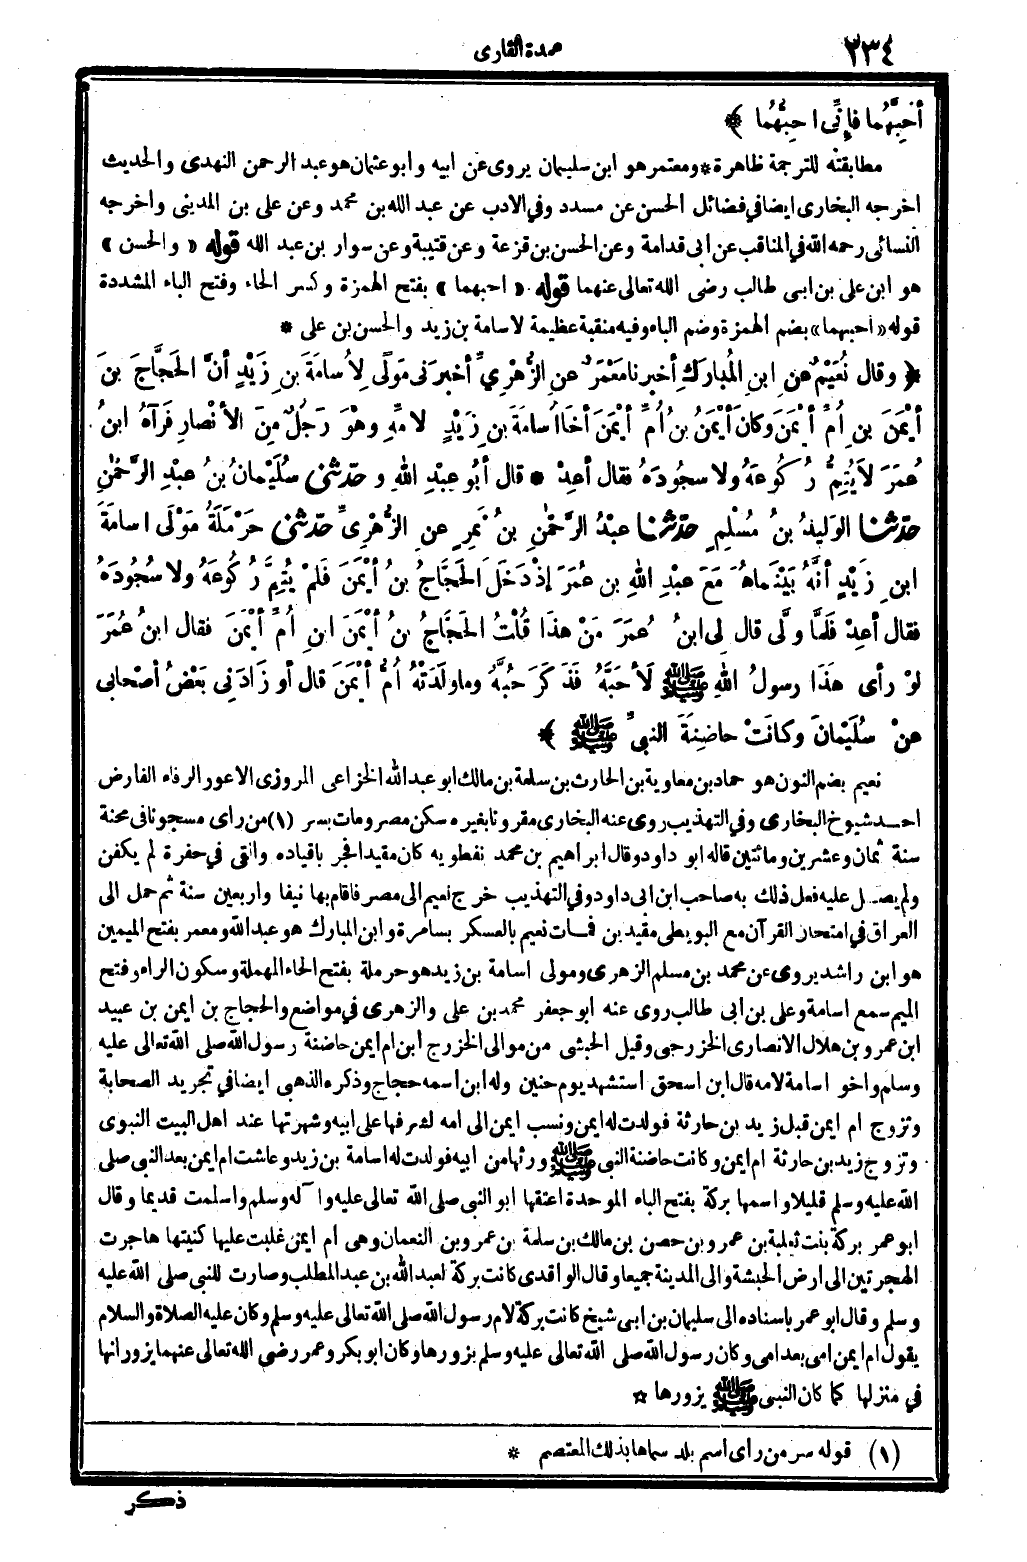 ٢٣٤
عمدة القارى
أحِبَّهُما فإِنِّى احِبُّهُما ﴾
مطابقته للترجمة ظاهرة * ومعتمر هو ابن سليمان يروى عن ابيه وابو عثمان هو عبد الرحمن النهدى والحديث
اخرجه البخارى ايضا في فضائل الحسن عن مسدد وفي الادب عن عبد الله بن محمد وعن على بن المدينى واخرجه
النسائى رحمه الله في المناقب عن ابى قدامة وعن الحسن بن قزعة وعن قتيبة وعن سوار بن عبد الله قوله « والحسن »
هو ابن على بن ابى طالب رضى الله تعالى عنهما قوله « احبهما » بفتح الهمزة وكسر الحاء وفتح الباء المشددة
قوله «احبهما» بضم الهمزة وضم الباء وفيه منقبة عظيمة لاسامة بن زيد والحسن بن على *
﴿ وقال نُعَيْمٌ عنِ ابنِ المُبارَكِ أخبرنا مَعْمَرٌ عنِ الزُّهْرِيِّ أخبرَنى مَوْلًى لِأُسامَةَ بنِ زَيْدٍ أنَّ الحَجَّاجَ بنَ
أيْمَنَ بنِ أُمِّ أيْمَنَ وكانَ أيْمَنُ بنُ أُمِّ أيْمَنَ أخَا أُسامَةَ بنِ زيْدٍ لامِّهِ وهْوَ رَجُلٌ مِنَ الأنْصارِ فَرَآهُ ابنُ
عُمَرَ لاَ يُتِمُّ رُكُوعَهُ ولا سجُودَهُ فقال أعِدْ * قال أبُو عبْدِ اللهِ وحدّثنى سُلَيْمانُ بنُ عبْدِ الرَّحْمٰنِ
حدّثنا الوَلِيدُ بنُ مُسْلِمٍ حدّثنا عبْدُ الرَّحْمٰنِ بنُ نَمِرٍ عنِ الزُّهْرِىِّ حدّثنى حَرْمَلَةُ مَوْلَى اسامَةَ
ابنِ زَيْدٍ أنَّهُ بَيْنَما هُوَ مَعَ عبْدِ اللهِ بنِ عُمَرَ إذْ دَخَلَ الحَجَّاجُ بنُ أيْمَنَ فَلَمْ يُتِمَّ رُكُوعَهُ ولا سُجُودَهُ
فقال أعِدْ فَلمَّا ولَّى قال لِى ابنُ عُمَرَ مَنْ هذَا قُلْتُ الحَجَّاجُ بنُ أيْمَنَ ابنِ أُمِّ أيْمَنَ فقال ابنُ عُمَرَ
لوْ رأى هَذَا رسولُ اللهِ ﷺ لَأَحَبَّهُ فَذَكَرَ حُبَّهُ وما ولَدَتْهُ أُمُّ أيْمَنَ قال أو زَادَنِى بَعْضُ أصْحابى
عنْ سُلَيْمانَ وكانَتْ حاضِنَةَ النبىِّ ﷺ ﴾
نعيم بضم النون هو حماد بن معاوية بن الحارث بن سلمة بن مالك ابو عبد الله الخزاعى المروزى الاعور الرفاء الفارض
احد شيوخ البخارى وفي التهذيب روى عنه البخارى مقرونا بغيره سكن مصر ومات بسر (١) من رأى مسجونا فى محنة
سنة ثمان وعشرين ومائتين قاله ابو داود وقال ابراهيم بن محمد نفطويه كان مقيدا فجر باقياده والقى في حفرة لم يكفن
ولم يصل عليه فعل ذلك به صاحب ابن ابى داود وفي التهذيب خرج نعيم الى مصر فاقام بها نيفا واربعين سنة ثم حمل الى
العراق في امتحان القرآن مع البويطى مقيدين فمات نعيم بالعسكر بسامرة وابن المبارك هو عبد الله ومعمر بفتح الميمين
هو ابن راشد يروى عن محمد بن مسلم الزهرى ومولى اسامة بن زيد هو حرملة بفتح الحاء المهملة وسكون الراء وفتح
الميم سمع اسامة وعلى بن ابى طالب روى عنه ابو جعفر محمد بن على والزهرى في مواضع والحجاج بن ايمن بن عبيد
ابن عمرو بن هلال الانصارى الخزرجى وقيل الحبشى من موالى الخزرج ابن ام ايمن حاضنة رسول الله صلى الله تعالى عليه
وسلم واخو اسامة لامه قال ابن اسحق استشهد يوم حنين وله ابن اسمه حجاج وذكره الذهبى ايضا في تجريد الصحابة
وتزوج ام ايمن قبل زيد بن حارثة فولدت له ايمن ونسب ايمن الى امه لشرفها على ابيه وشهرتها عند اهل البيت النبوى
وتزوج زيد بن حارثة ام ايمن وكانت حاضنة النبى ﷺ ورثها من ابيه فولدت له اسامة بن زيد وعاشت ام ايمن بعد النبى صلى
الله عليه وسلم قليلا واسمها بركة بفتح الباء الموحدة اعتقها ابو النبى صلى الله تعالى عليه وآله وسلم واسلمت قديما وقال
ابو عمر بركة بنت ثعلبة بن عمرو بن حصن بن مالك بن سلمة بن عمرو بن النعمان وهى ام ايمن غلبت عليها كنيتها هاجرت
الهجرتين الى ارض الحبشة والى المدينة جميعا وقال الواقدى كانت بركة لعبد الله بن عبد المطلب وصارت للنبى صلى الله عليه
وسلم وقال ابو عمر باسناده الى سليمان بن ابى شيخ كانت بركة لام رسول الله صلى الله تعالى عليه وسلم وكان عليه الصلاة والسلام
يقول ام ايمن امى بعد امى وكان رسول الله صلى الله تعالى عليه وسلم يزورها وكان ابو بكر وعمر رضى الله تعالى عنهما يزورانها
في منزلها كما كان النبى ﷺ يزورها *
(١) قوله سر من رأى اسم بلد سماها بذلك المعتصم *
ذكر